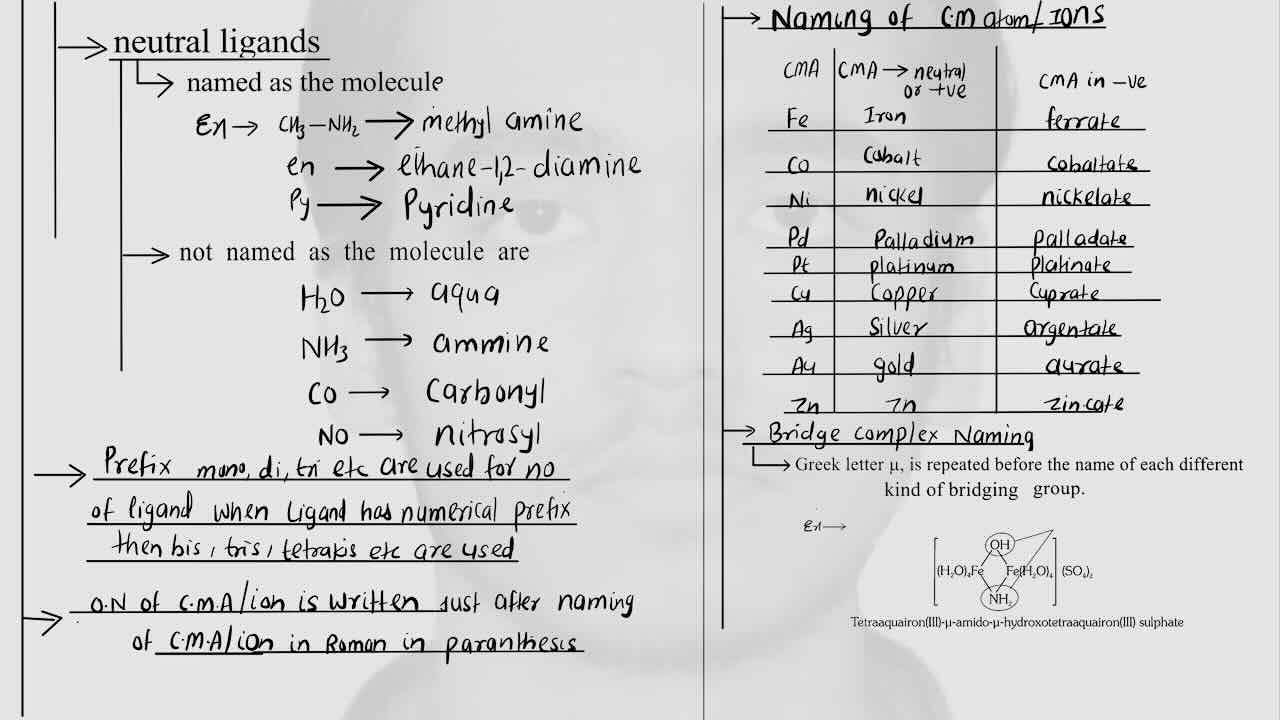 neutral ligands
named as the molecule
Ex → CH₃–NH₂ → methyl amine
en → ethane-1,2-diamine
Py → Pyridine
not named as the molecule are
H₂O → aqua
NH₃ → ammine
CO → Carbonyl
NO → nitrosyl
Prefix mono, di, tri etc are used for no
of ligand when Ligand has numerical prefix
then bis, tris, tetrakis etc are used
O.N of C.M.A/ion is written Just after naming
of C.M.A/ion in Roman in paranthesis
Naming of C.M atom/IONS
CMA | CMA → neutral or +ve | CMA in -ve
Fe | Iron | ferrate
Co | Cobalt | cobaltate
Ni | nickel | nickelate
Pd | Palladium | palladate
Pt | platinum | Platinate
Cu | Copper | Cuprate
Ag | Silver | argentate
Au | gold | aurate
Zn | Zn | zincate
Bridge complex Naming
Greek letter μ, is repeated before the name of each different
kind of bridging group.
Ex →
OH
(H₂O)₄Fe Fe(H₂O)₄ (SO₄)₂
NH₂
Tetraaquairon(III)-μ-amido-μ-hydroxotetraaquairon(III) sulphate